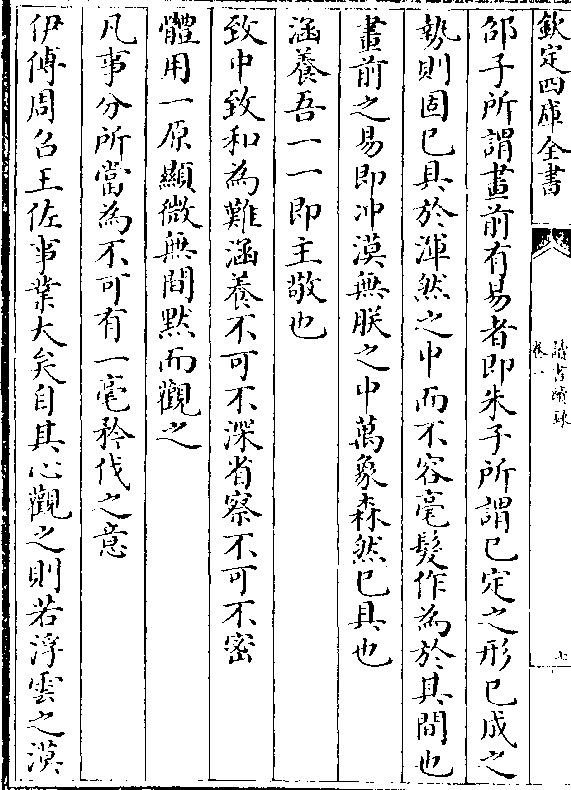 欽定四庫全書
讀書續録
卷一
上
邵子所謂畫前有易者即朱子所謂已定之形已成之
勢則固已具於渾然之中而不容毫髮作為於其間也
畫前之易即冲漠無朕之中萬象森然已具也
涵養吾一一即主敬也
致中致和為難涵養不可不深省察不可不密
體用一原顯微無間黙而觀之
凡事分所當為不可有一毫矜伐之意
伊傅周召王佐事業大矣自其心觀之則若浮雲之漠